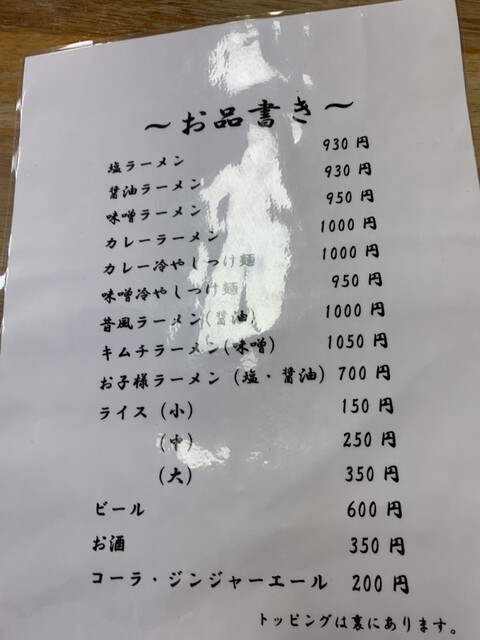 ～お品書き～
塩ラーメン 930円
醤油ラーメン 930円
味噌ラーメン 950円
カレーラーメン 1000円
カレー冷やしつけ麺 1000円
味噌冷やしつけ麺 950円
昔風ラーメン(醤油) 1000円
キムチラーメン(味噌) 1050円
お子様ラーメン（塩・醤油）700円
ライス（小） 150円
（中） 250円
（大） 350円
ビール 600円
お酒 350円
コーラ・ジンジャーエール 200円
トッピングは裏にあります。